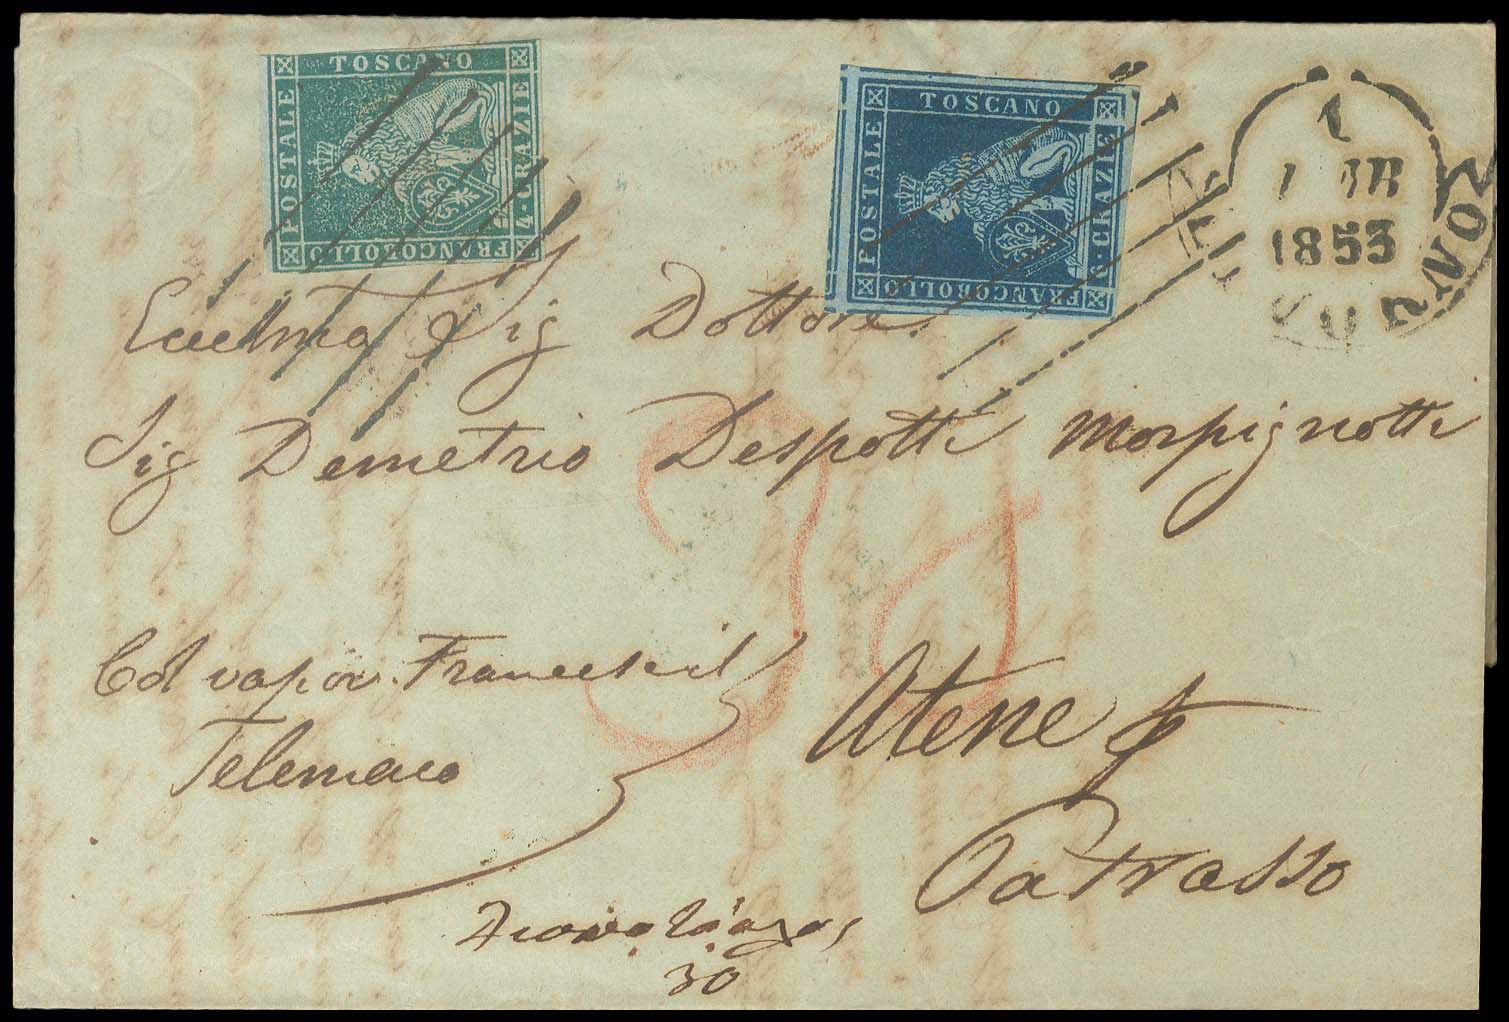 TOSCANO
POSTALE
4·CRAZIE
FRANCOBOLLO
TOSCANO
POSTALE
CRAZIE
FRANCOBOLLO
1
MAR
1853
Sig Dottore
Sig Demetrio Despotti Morpignotti
Col vapor
Telemaco
Atene p
Patrasso
30